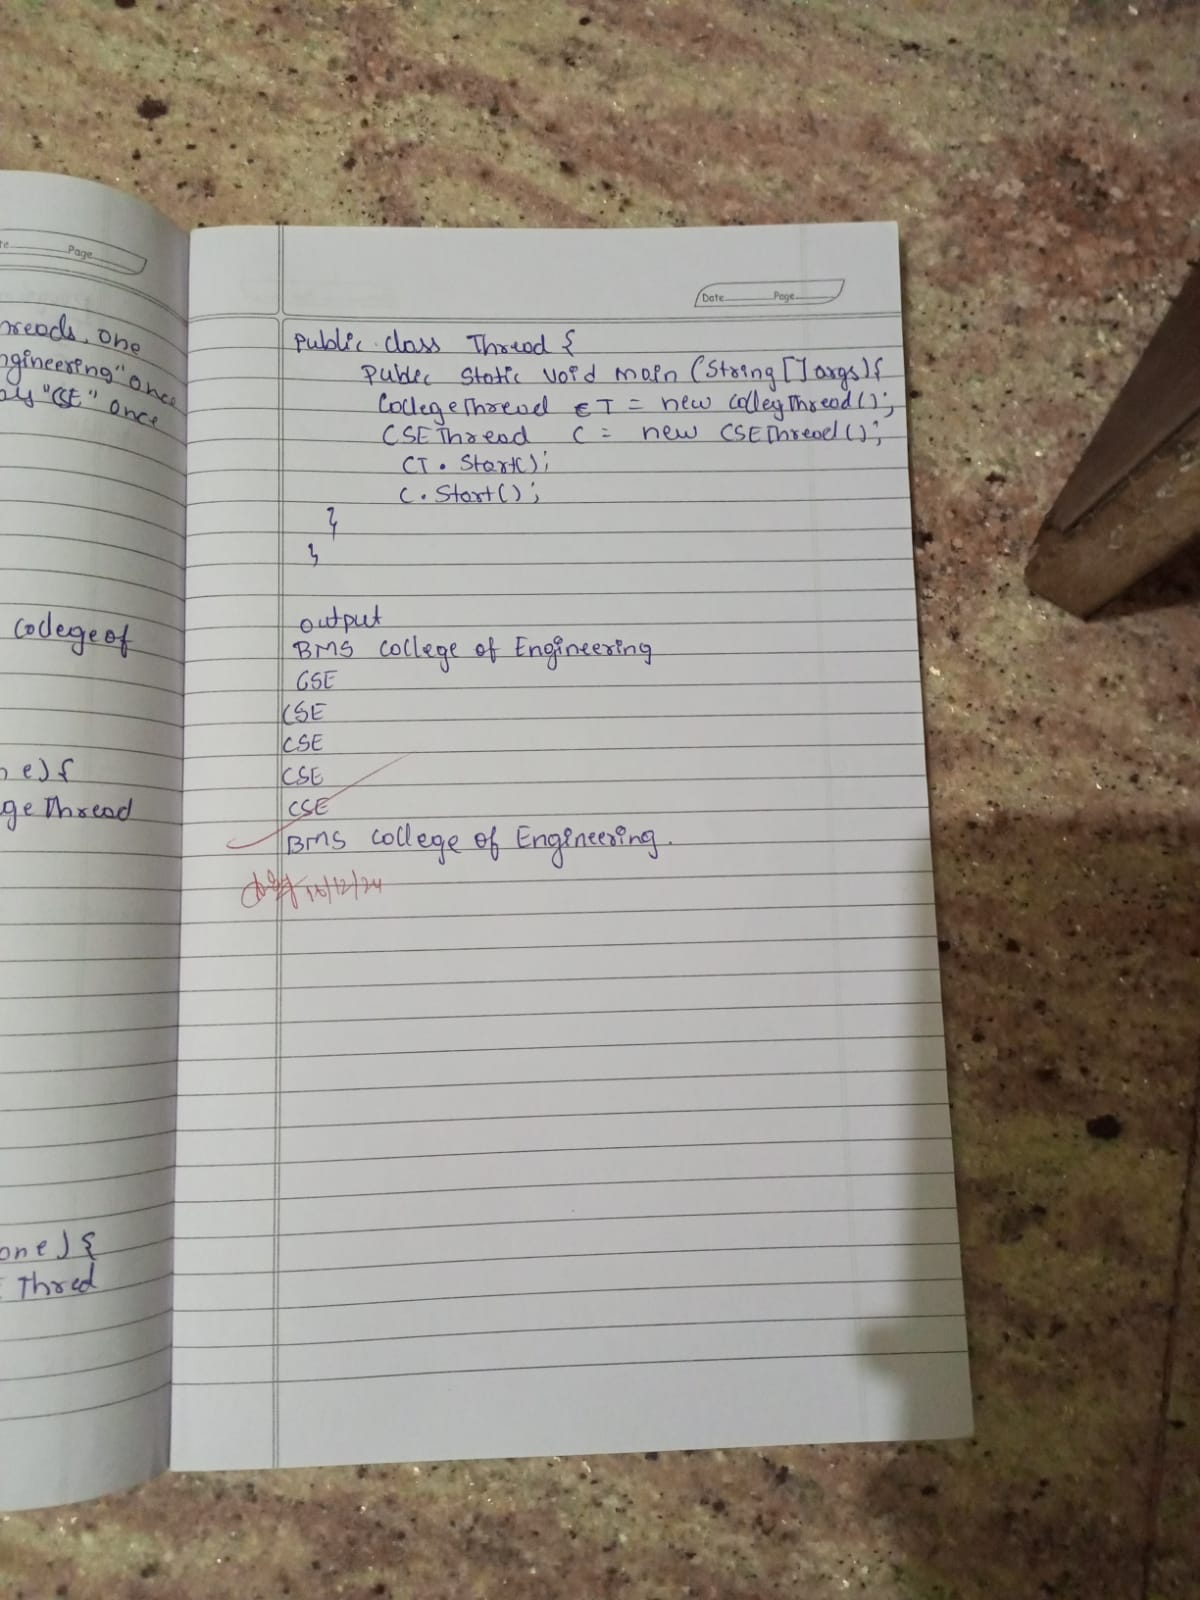 te Page
hreads, one
ngineering" once
ay "CSE" once
college of
ne) {
ge Thread
one) {
Thred
Date Page
public class Thread {
public static void main (String [] args) {
CollegeThread CT = new CollegThread();
CSEThread C = new CSEThread();
CT. Start();
C. Start();
}
}
output
BMS College of Engineering
CSE
CSE
CSE
CSE
CSE
BMS College of Engineering.
/12/24